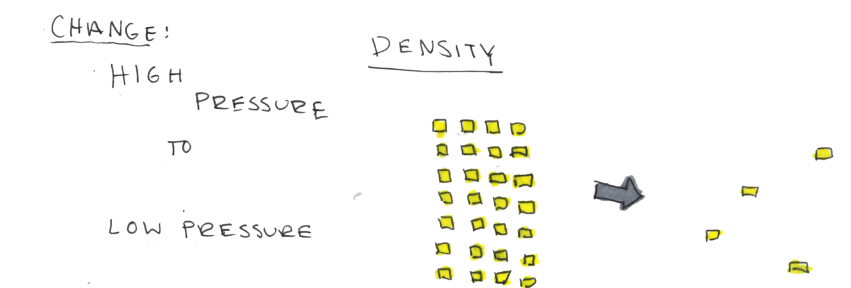 CHANGE:
HIGH
PRESSURE
TO
LOW PRESSURE
DENSITY